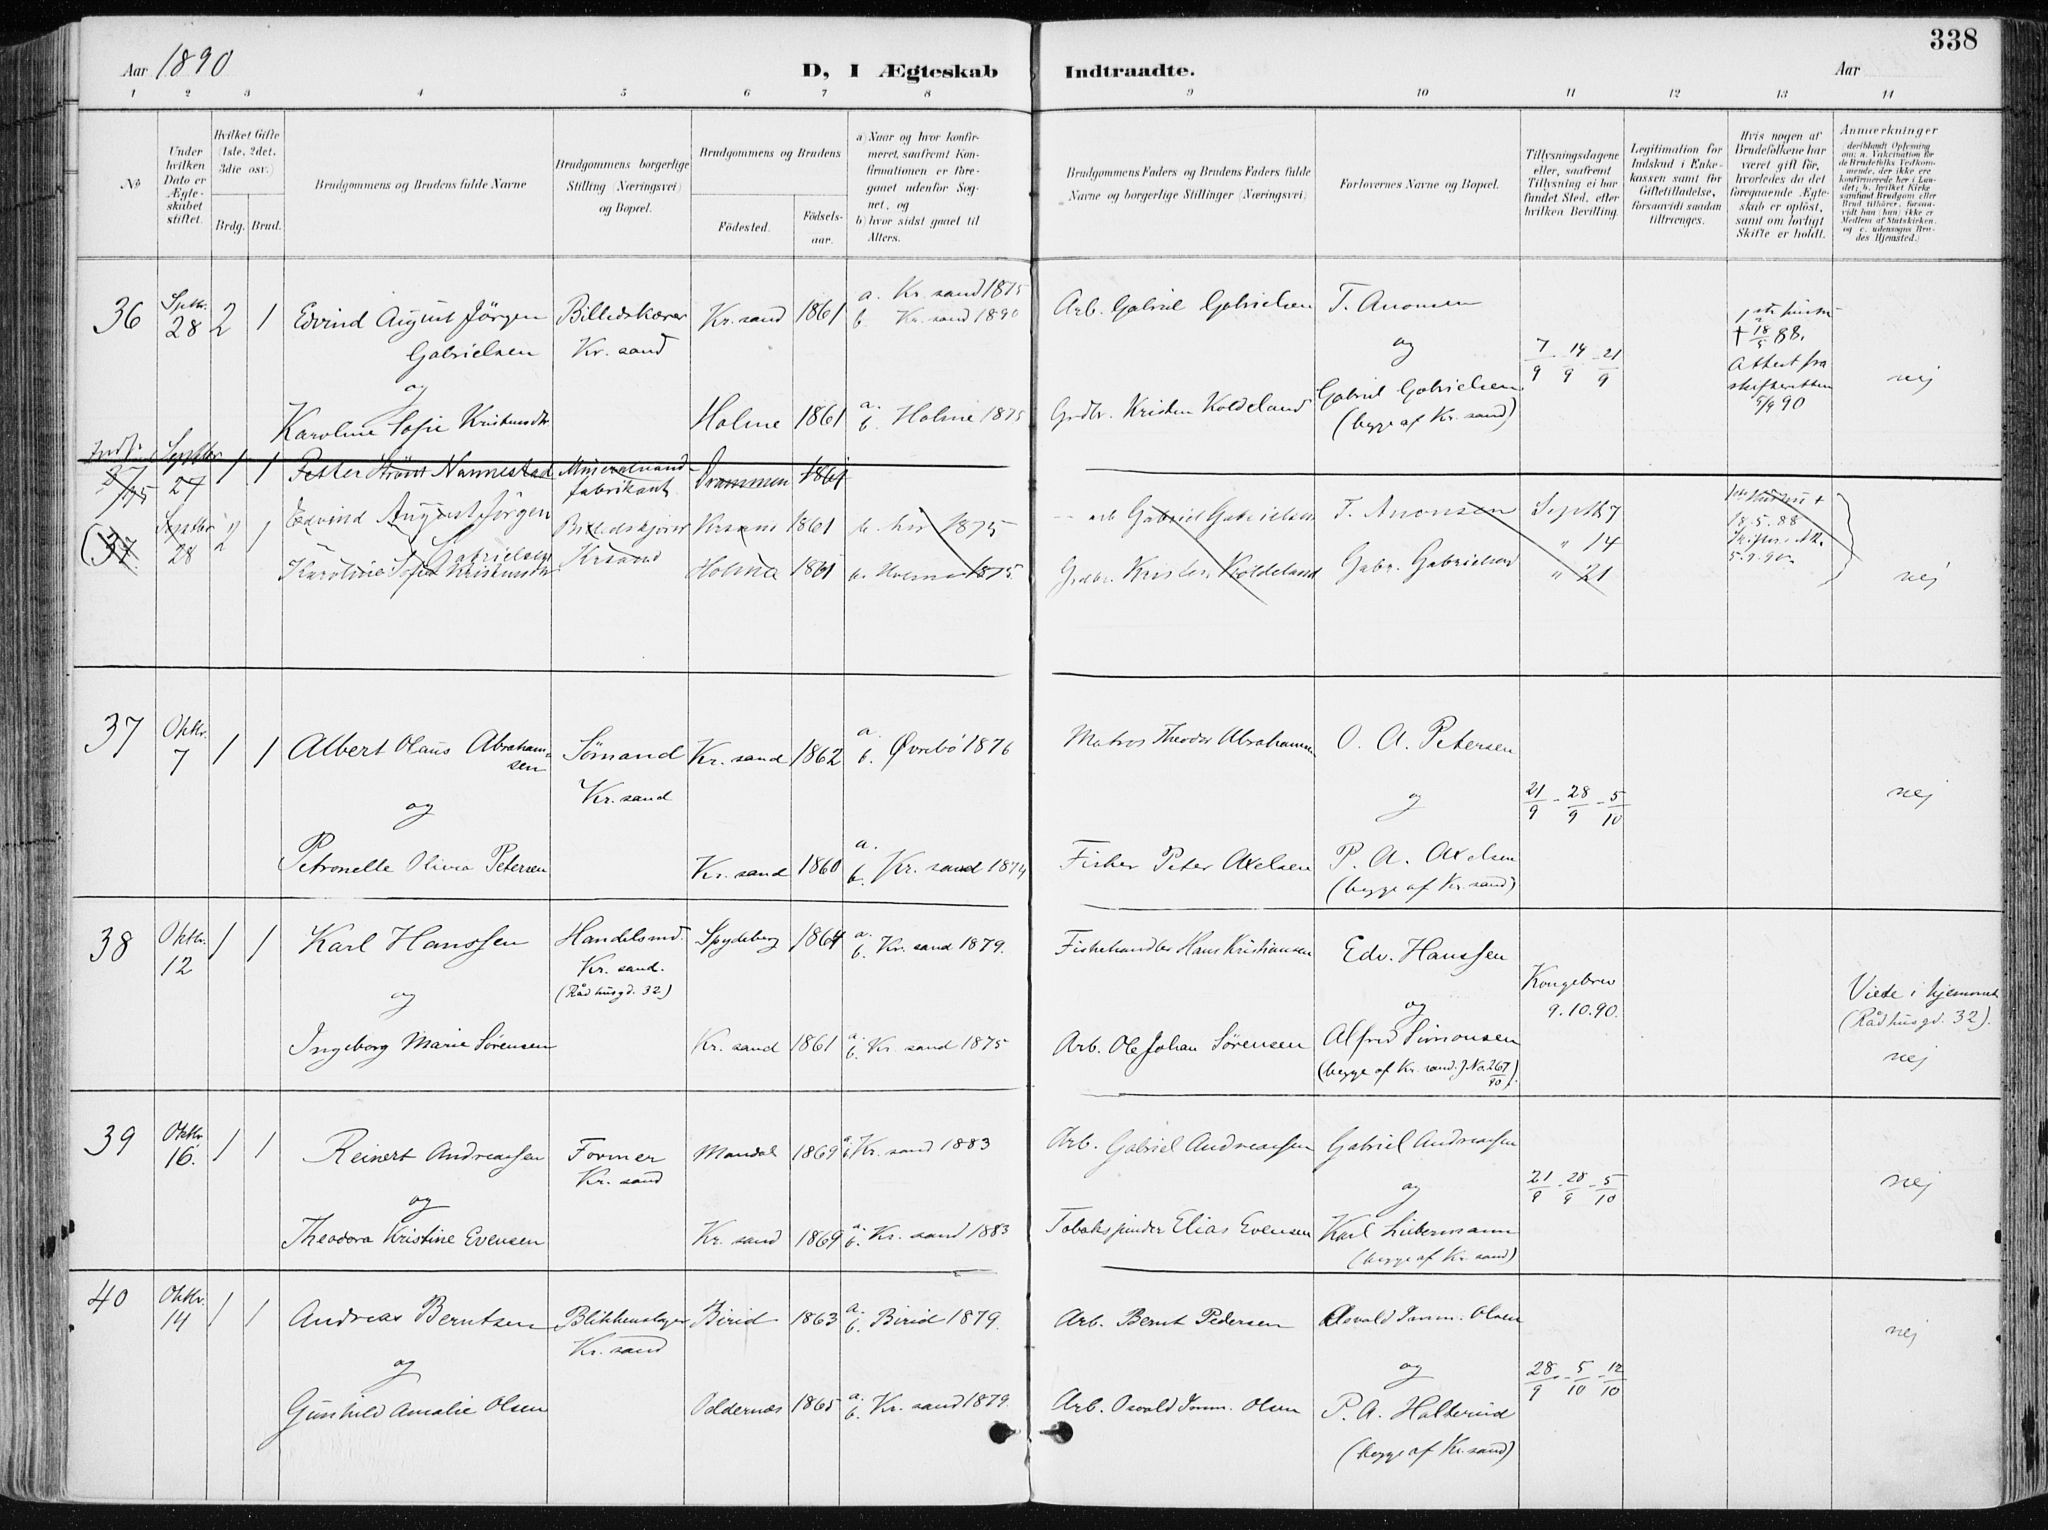 338
Aar 1890
D, I Ægteskab Indtraadte.
Aar
1 2 3 4 5 6 7 8 9 10 11 12 13 14
No
Under hvilken Dato er Ægteskabet stiftet.
Hvilket Gifte (1ste, 2det, 3die osv.)
Brdg. Brud.
Brudgommens og Brudens fulde Navne
Brudgommens borgerlige Stilling (Næringsvei) og Bopæl.
Brudgommens og Brudens
Fødested.
Fødselsaar.
a) Naar og hvor konfirmeret, saafremt Konfirmationen er foregaaet udenfor Sognet, og
b) hvor sidst gaaet til Alters.
Brudgommens Faders og Brudens Faders fulde Navne og borgerlige Stillinger (Næringsvei)
Forlovernes Navne og Bopæl.
Tillysningsdagene eller, saafremt Tillysning ei har fundet Sted, efter hvilken Bevilling.
Legitimation for Indskud i Enkekassen samt for Giftetilladelse, forsaavidt saadan tiltrænges.
Hvis nogen af Brudefolkene har været gift før, hvorledes da det foregaaende Ægteskab er opløst, samt om lovligt Skifte er holdt.
Anmærkninger
deriblandt Oplysning om: a. Vakcination for de Brudefolks Vedkommende, der ikke ere konfirmerede her i Landet; b. hvilket Kirkesamfund Brudgom eller Brud tilhører, forsaavidt han (hun) ikke er Medlem af Statskirken, og c. udensogns Brudes Hjemsted.)
36 Septbr. 28 2 1 Edvind August Jørgen Gabrielsen Billedskærer Kr. sand Kr. sand 1861 a. Kr. sand 1875 b Kr. sand 1890 Arb. Gabriel Gabrielsen T. Anonsen
og
og
7/9 - 14/9 - 21/9
† 18/5 88. Attest fra skifteretten 5/9 90
nej
Karoline Sofie Kristensdtr. Holme 1861 a. b. Holme 1875 Grdbr. Kristen Koldeland Gabriel Gabrielsen (begge af Kr. sand)
Septbr 27 1 1 Petter Strøm Nannestad Mineralvandfabrikant Drammen 1861
(37. Septbr 28 2 1 Edvind August Jørgen Gabrielsen Billedskjærer Krsand Krsand 1861 1875 arb Gabriel Gabrielsen T. Anonsen Septb 7
" 14
18.5.88
5.9.90
Karoline Sofie Kristensdtr Holme 1861 Holme 1875. Grdbr. Kristen Koldeland Gabr. Gabrielsen " 21 nej
37 Oktbr. 7 1 1 Albert Olaus Abrahamsen Sømand Kr. sand Kr. sand 1862 a. b. Øvrebö 1876 Matros Theodor Abrahamsen O. A. Petersen
og
og
21/9 - 28/9 - 5/10
nej
Petronelle Olivia Petersen Kr. sand 1860 a. b. Kr. sand 1874 Fisker Peter Axelsen P. A. Axelsen (begge af Kr. sand)
38 Oktbr. 12 1 1 Karl Hanssen Handelsmd. Kr. sand. (Rådhusgd. 32) Spydeberg 1864 a. b. Kr. sand 1879. Fiskehandler Hans Kristiansen Edv. Hanssen
og
og
Kongebrev 9.10.90.
Viede i hjemmet (Rådhusgd. 32). nej
Ingeborg Marie Sørensen Kr. sand 1861 a. b. Kr. sand 1875 Arb. Ole Johan Sørensen Alfred Simonsen (begge af Kr. sand.) No. 267/90.
39 Oktbr. 16. 1 1 Reinert Andreassen Former Kr. sand Mandal 1869 a. b. Kr. sand 1883 Arb. Gabriel Andreassen Gabriel Andreassen
og
og
21/9 - 28/9 - 5/10
nej
Theodora Kristine Evensen Kr. sand 1869 a. b. Kr. sand 1883 Tobakspinder Elias Evensen Karl Liebermann (begge af Kr. sand)
40 Oktbr. 14 1 1 Andreas Berntsen Blikkenslager Kr. sand Birid 1863 a. b. Birid 1879. Arb. Bernt Pedersen Osvald Olsen
og
og
28/9 - 5/10 - 12/10
nej
Gunhild Amalie Olsen Oddernæs 1865 a. b. Kr. sand 1879. Arb. Osvald Olsen P. A. (begge af Kr. sand)